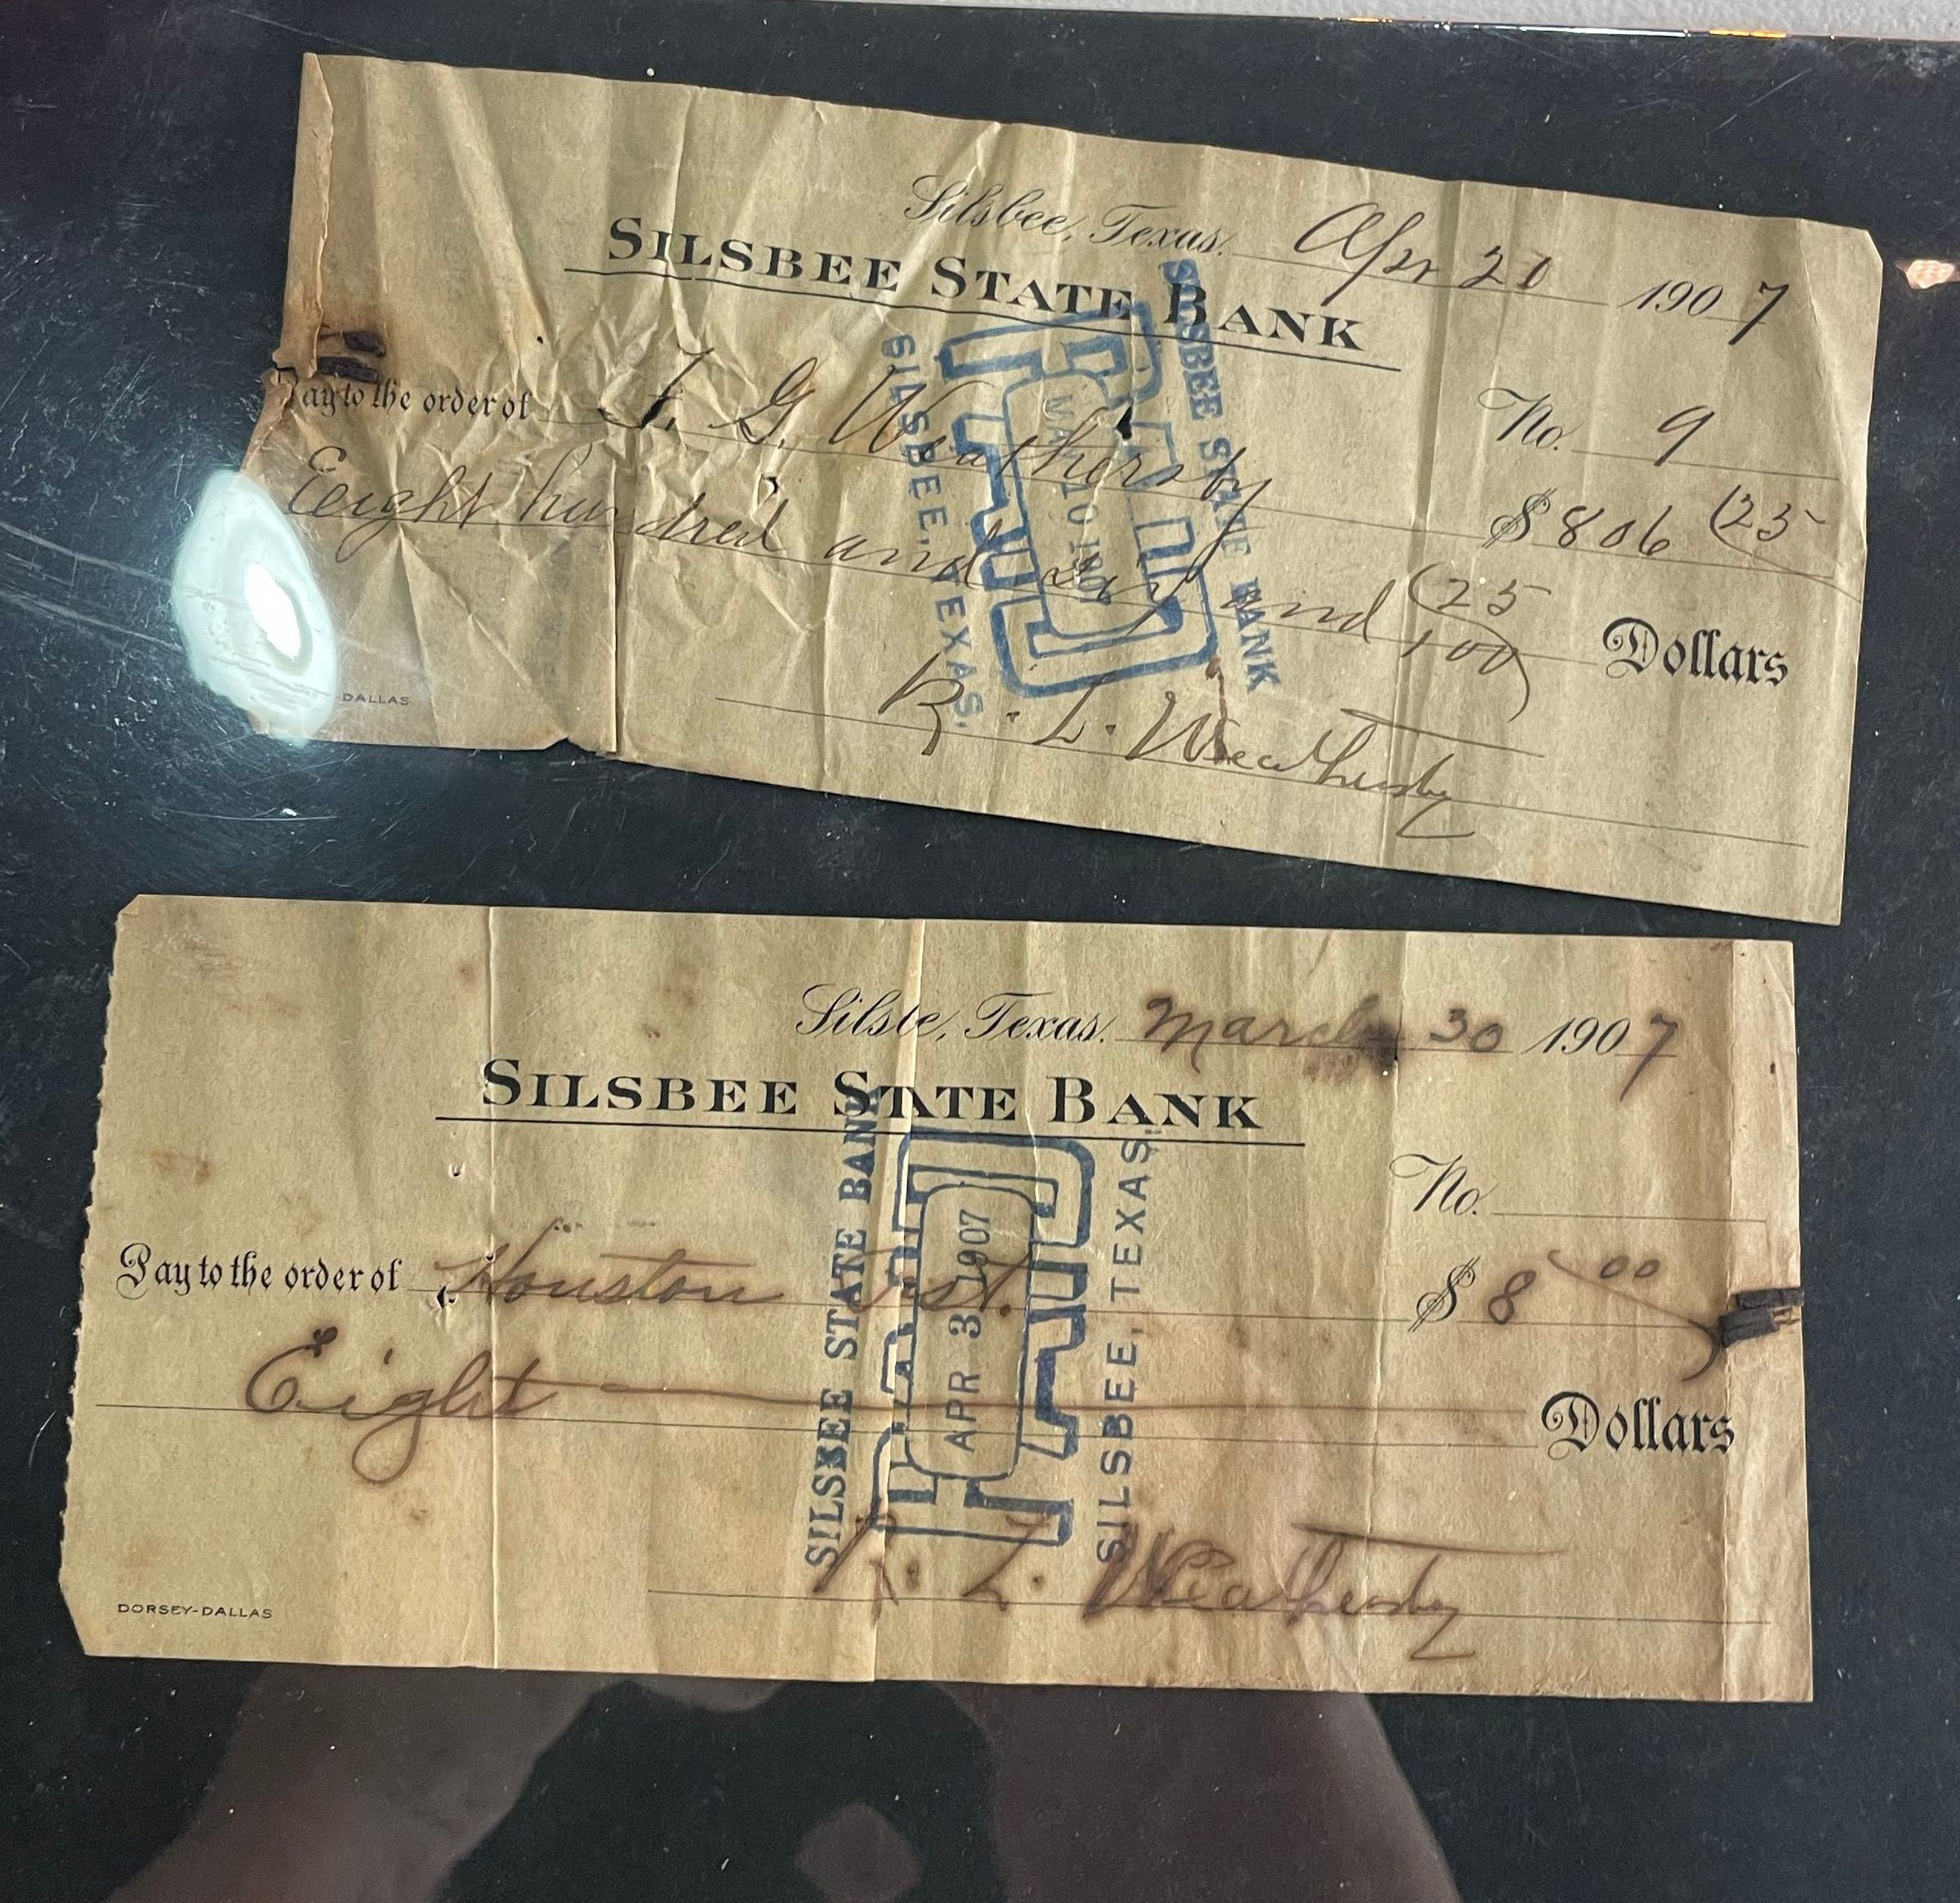 Silsbee, Texas. Apr 20 1907
SILSBEE STATE BANK
No. 9
Pay to the order of J. G. Weathersby $806 (25
Eeight hundred and six and (25/100) Dollars
R. L. Weathersby
DALLAS
SILSBEE STATE BANK
PAID
MAY 10 1907
SILSBEE, TEXAS.
Silsbe, Texas. March 30 1907
SILSBEE STATE BANK
No.
Pay to the order of Houston $8 00
Eight Dollars
R. L. Weathersby
DORSEY-DALLAS
SILSBEE STATE BANK
PAID
APR 3 1907
SILSBEE, TEXAS.